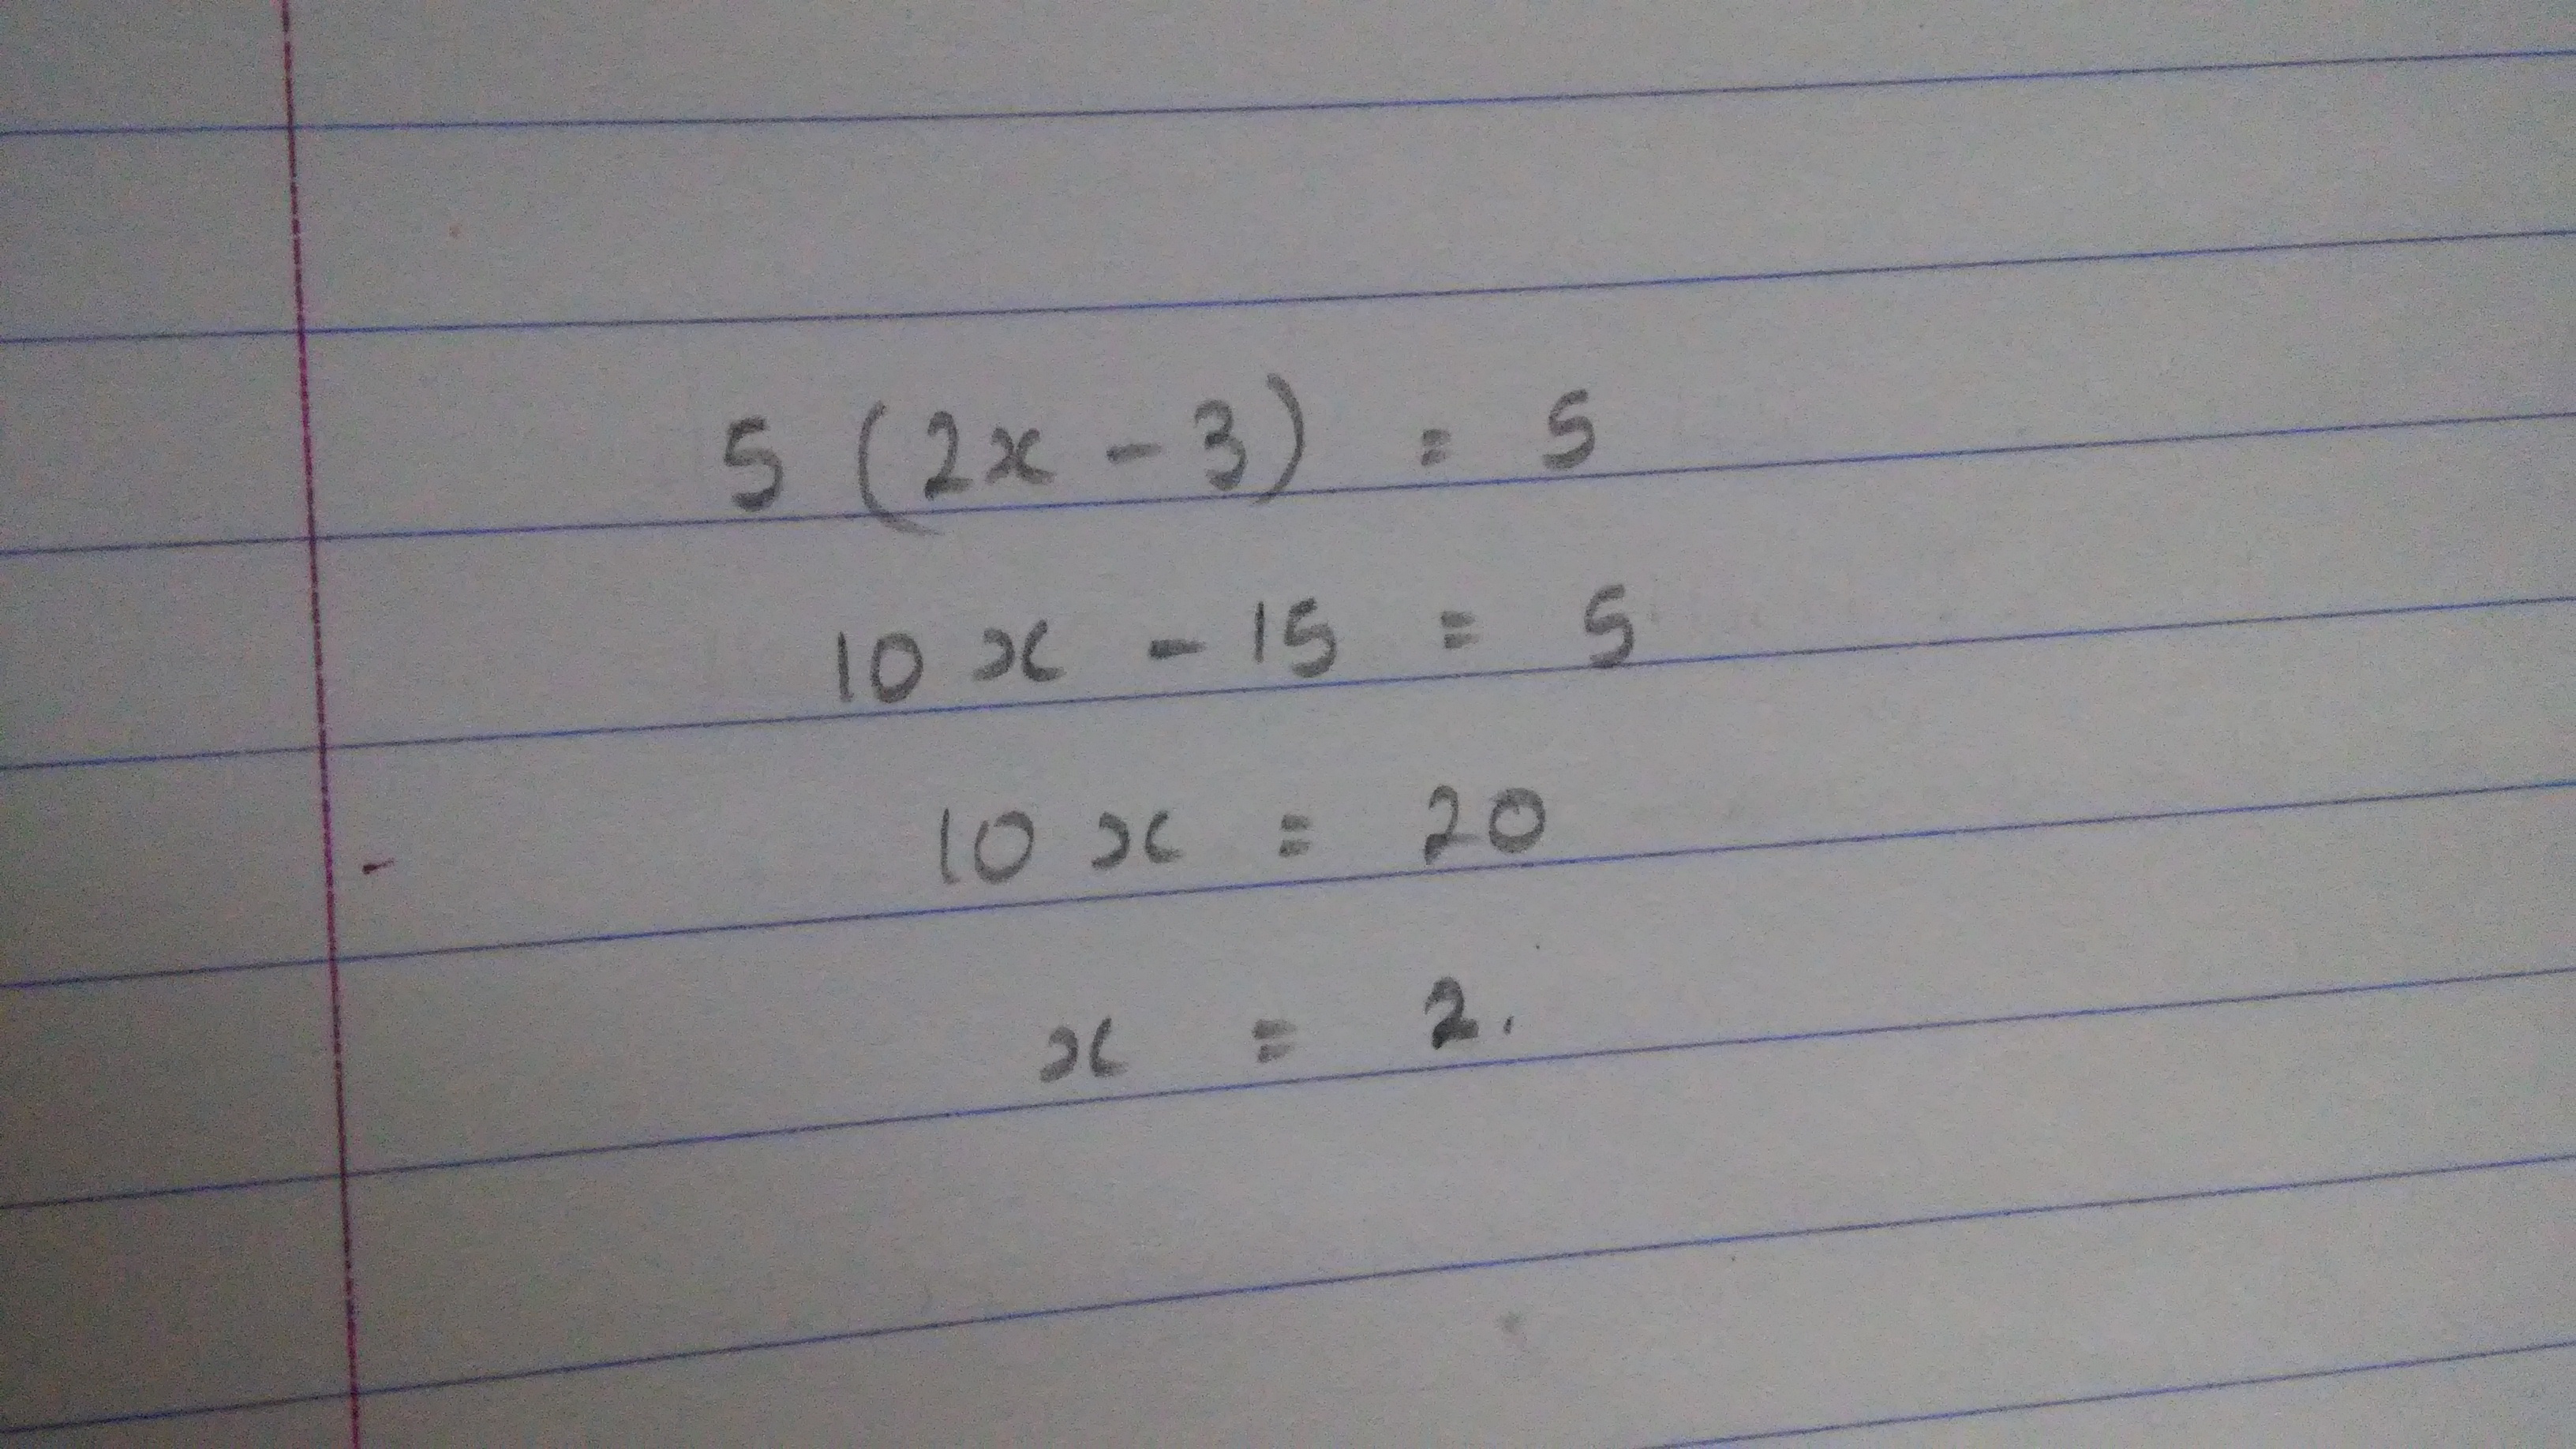 5 (2x - 3) = 5
10 x - 15 = 5
10 x = 20
x = 2.